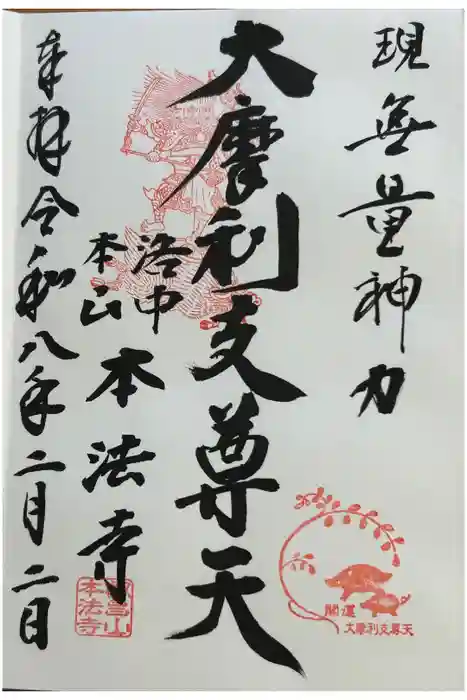 現無量神力
大摩利支尊天
洛中
本山
本法寺
奉拝令和八年二月二日
開運
大摩利支尊天
叡昌山
本法寺